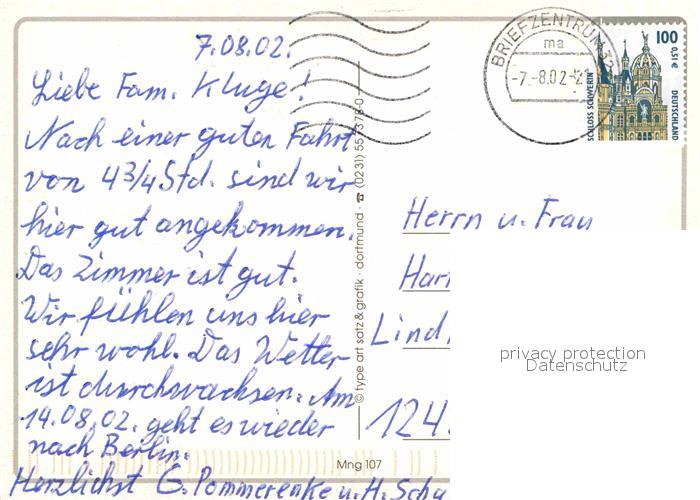 7.08.02.
Liebe Fam. Kluge!
Nach einer guten Fahrt
von 4 3/4 Std. sind wir
hier gut angekommen.
Das Zimmer ist gut.
Wir fühlen uns hier
sehr wohl. Das Wetter
ist durchwachsen. Am
14.08.02. geht es wieder
nach Berlin.
Herzlichst G. Pommerenke u. H. Scha
© type art satz & grafik · dortmund · ☎ (0231) 55 73 73-0
Mng 107
BRIEFZENTRUM
ma
-7.-8.02-
100
0,51 €
SCHLOSS SCHWERIN
DEUTSCHLAND
Herrn u. Frau
Har
Lind
124
privacy protection
Datenschutz